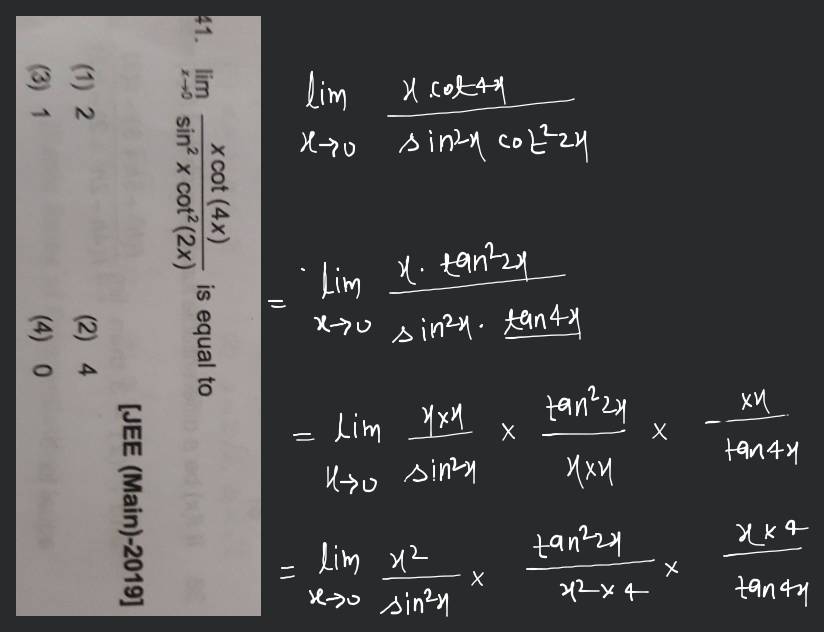 41. lim x→0 x cot (4x) / sin² x cot² (2x) is equal to
[JEE (Main)-2019]
(1) 2 (2) 4
(3) 1 (4) 0
lim x→0 x cot4x / sin²x cot²2x
= lim x→0 x · tan²2x / sin²x · tan4x
= lim x→0 x×x / sin²x × tan²2x / x×x × - ×x / tan4x
= lim x→0 x² / sin²x × tan²2x / x²×4 × x×4 / tan4x